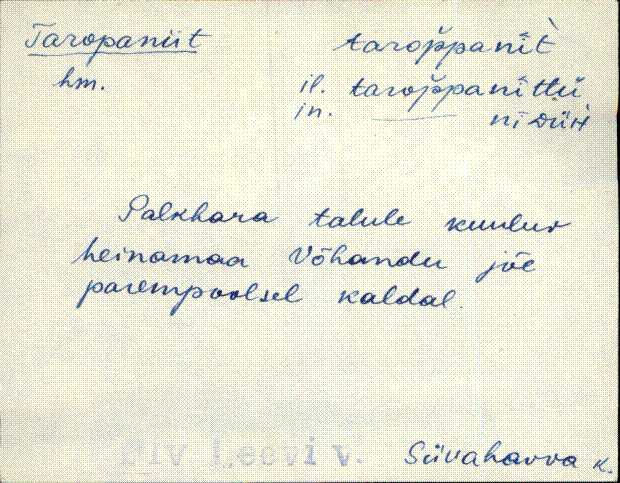 Taropaniit tarop̌panìt̀
hm. il. tarop̌panittú
in. nīDüH
Palkhara talule kuuluv
heinamaa Võhandu jõe
parempoolsel kaldal.
Leevi v. Süvahavva k.